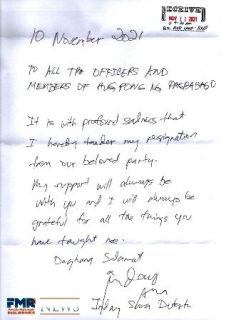 RECEIVED
NOV 11 2021
10 November 2021
TO ALL THE OFFICERS AND
MEMBERS OF HUGPONG NG PAGBABAGO
It is with profound sadness that
I hereby tender my resignation
from our beloved party.
My support will always be
with you and I will always be
grateful for all the things you
have taught me.
Daghang Salamat
Inday Sara Duterte
FMR
NEWS